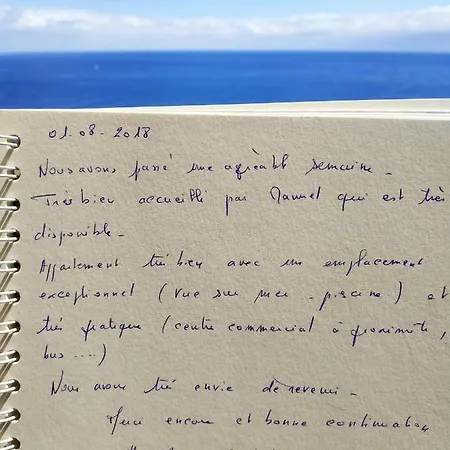 01.08.2018
Nous avons passé une agréable semaine.
Très bien accueilli par Manuel qui est très
disponible.
Appartement très bien avec un emplacement
exceptionnel (vue sur mer - piscine) et
très pratique (centre commercial à proximité,
bus ....)
Nous avons très envie de revenir.
Merci encore et bonne continuation